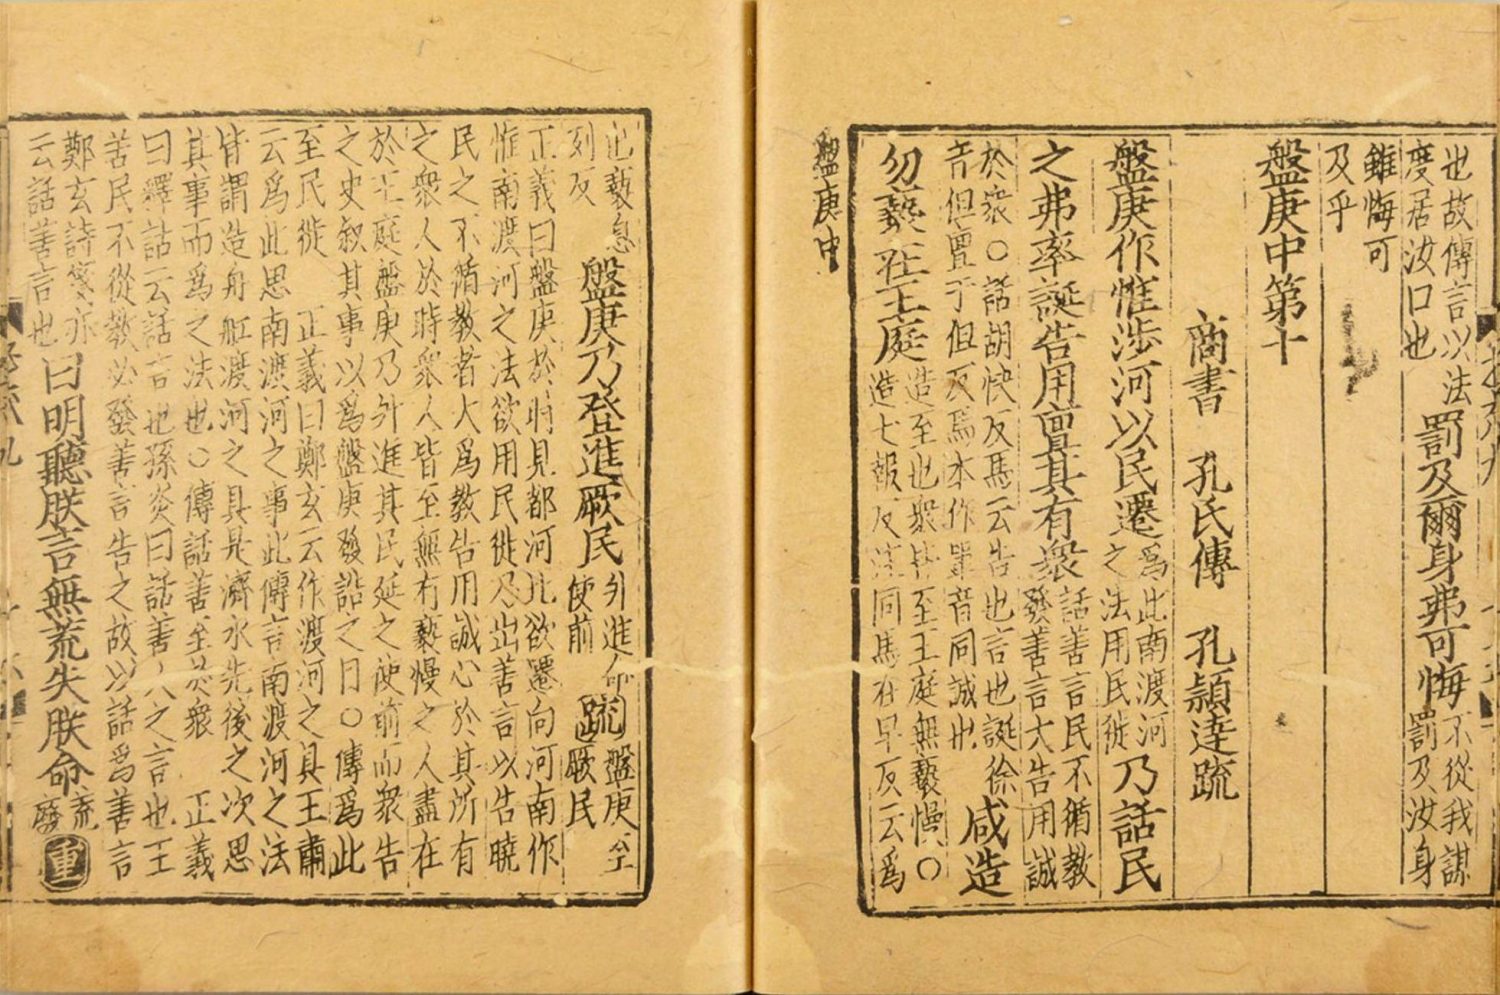 也故傳言以法
度居汝口也
罰及爾身弗可悔
不從我謀
罰及汝身
雖悔可
及乎
盤庚中第十
商書　孔氏傳　孔穎達疏
盤庚作惟涉河以民遷
為此南渡河
之法用民徙
乃話民
之弗率誕告用亶其有衆
話善言民不循教
發善言大告用誠
於衆〇話胡快反馬云告也言也誕徐
音但亶丁但反馬本作單音同誠也
咸造
勿褻在王庭
造至也衆皆至王庭無褻慢〇
造七報反注同馬在早反云為
盤庚中
也褻息
列反
盤庚乃登進厥民
升進命
使前
疏
盤庚至
厥民
正義曰盤庚於時見都河北欲遷向河南作
惟南渡河之法欲用民徙乃出善言以告曉
民之不循教者大為教告用誠心於其所有
之衆人於時衆人皆至無有褻慢之人盡在
於王庭盤庚乃升進其民延之使前而衆告
之史叙其事以為盤庚發誥之目〇傳為此
至民徙　正義曰鄭玄云作渡河之具王肅
云為此思南渡河之事此傳言南渡河之法
皆謂造舟舡渡河之具是濟水先後之次思
其事而為之法也〇傳話善至於衆　正義
曰釋詁云話言也孫炎曰話善人之言也王
苦民不從教必發善言告之故以話為善言
鄭玄詩箋亦
云話善言也
曰明聽朕言無荒失朕命
荒
廢
重